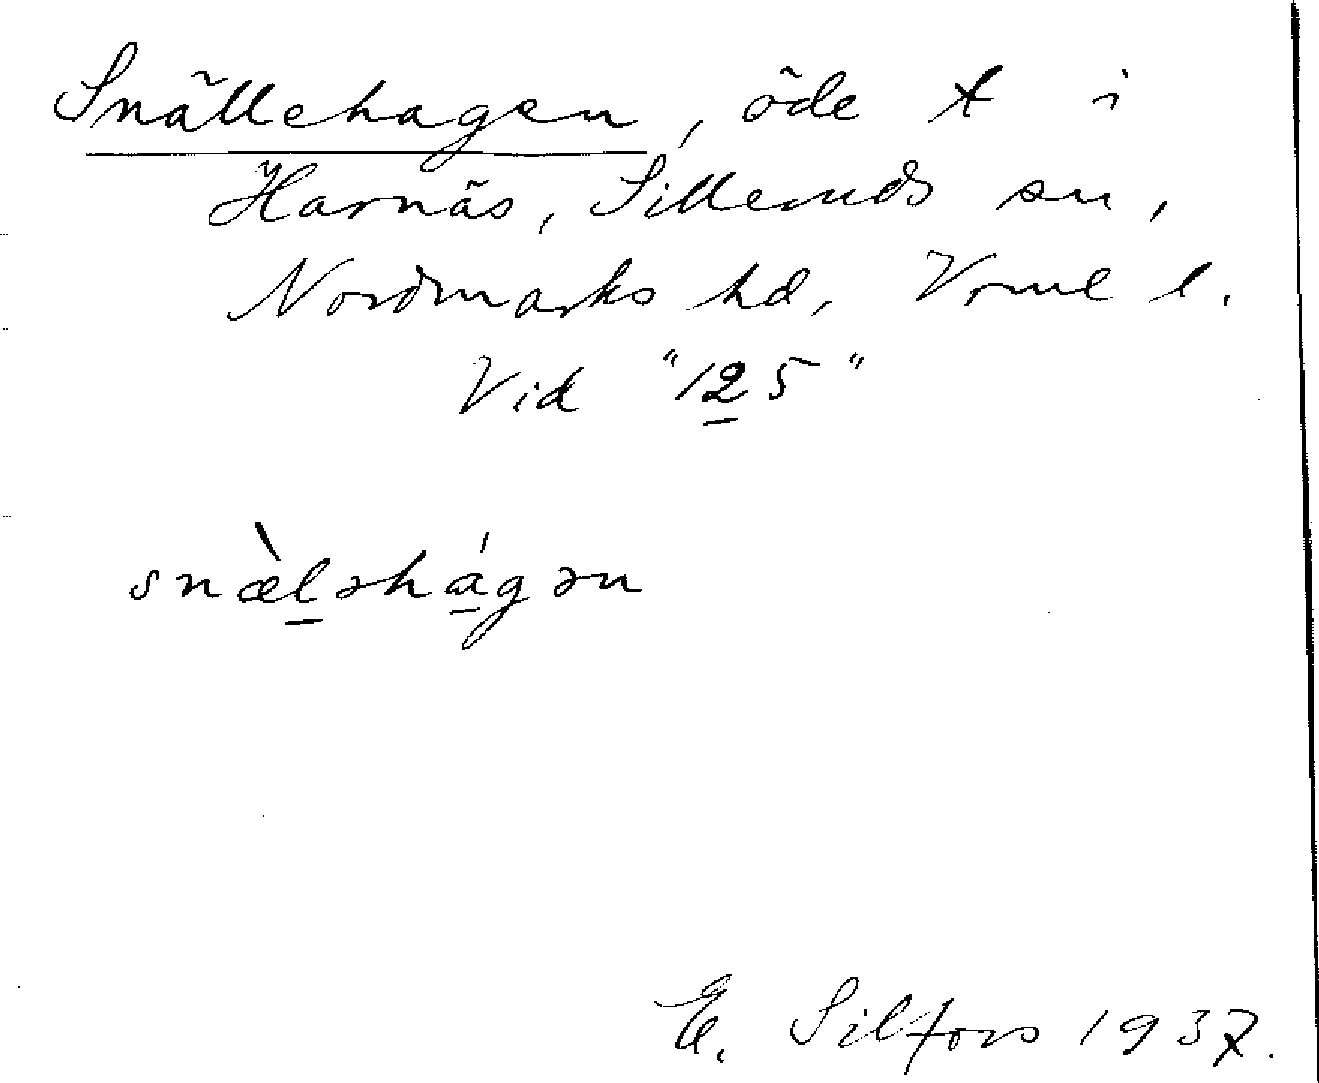 Snällehagen, öde t i
Harnäs, Silleruds sn,
Nordmarks hd, Vrml l.
Vid "125"
snæ̀l̲əhá̲gən
E. Silfors 1937.